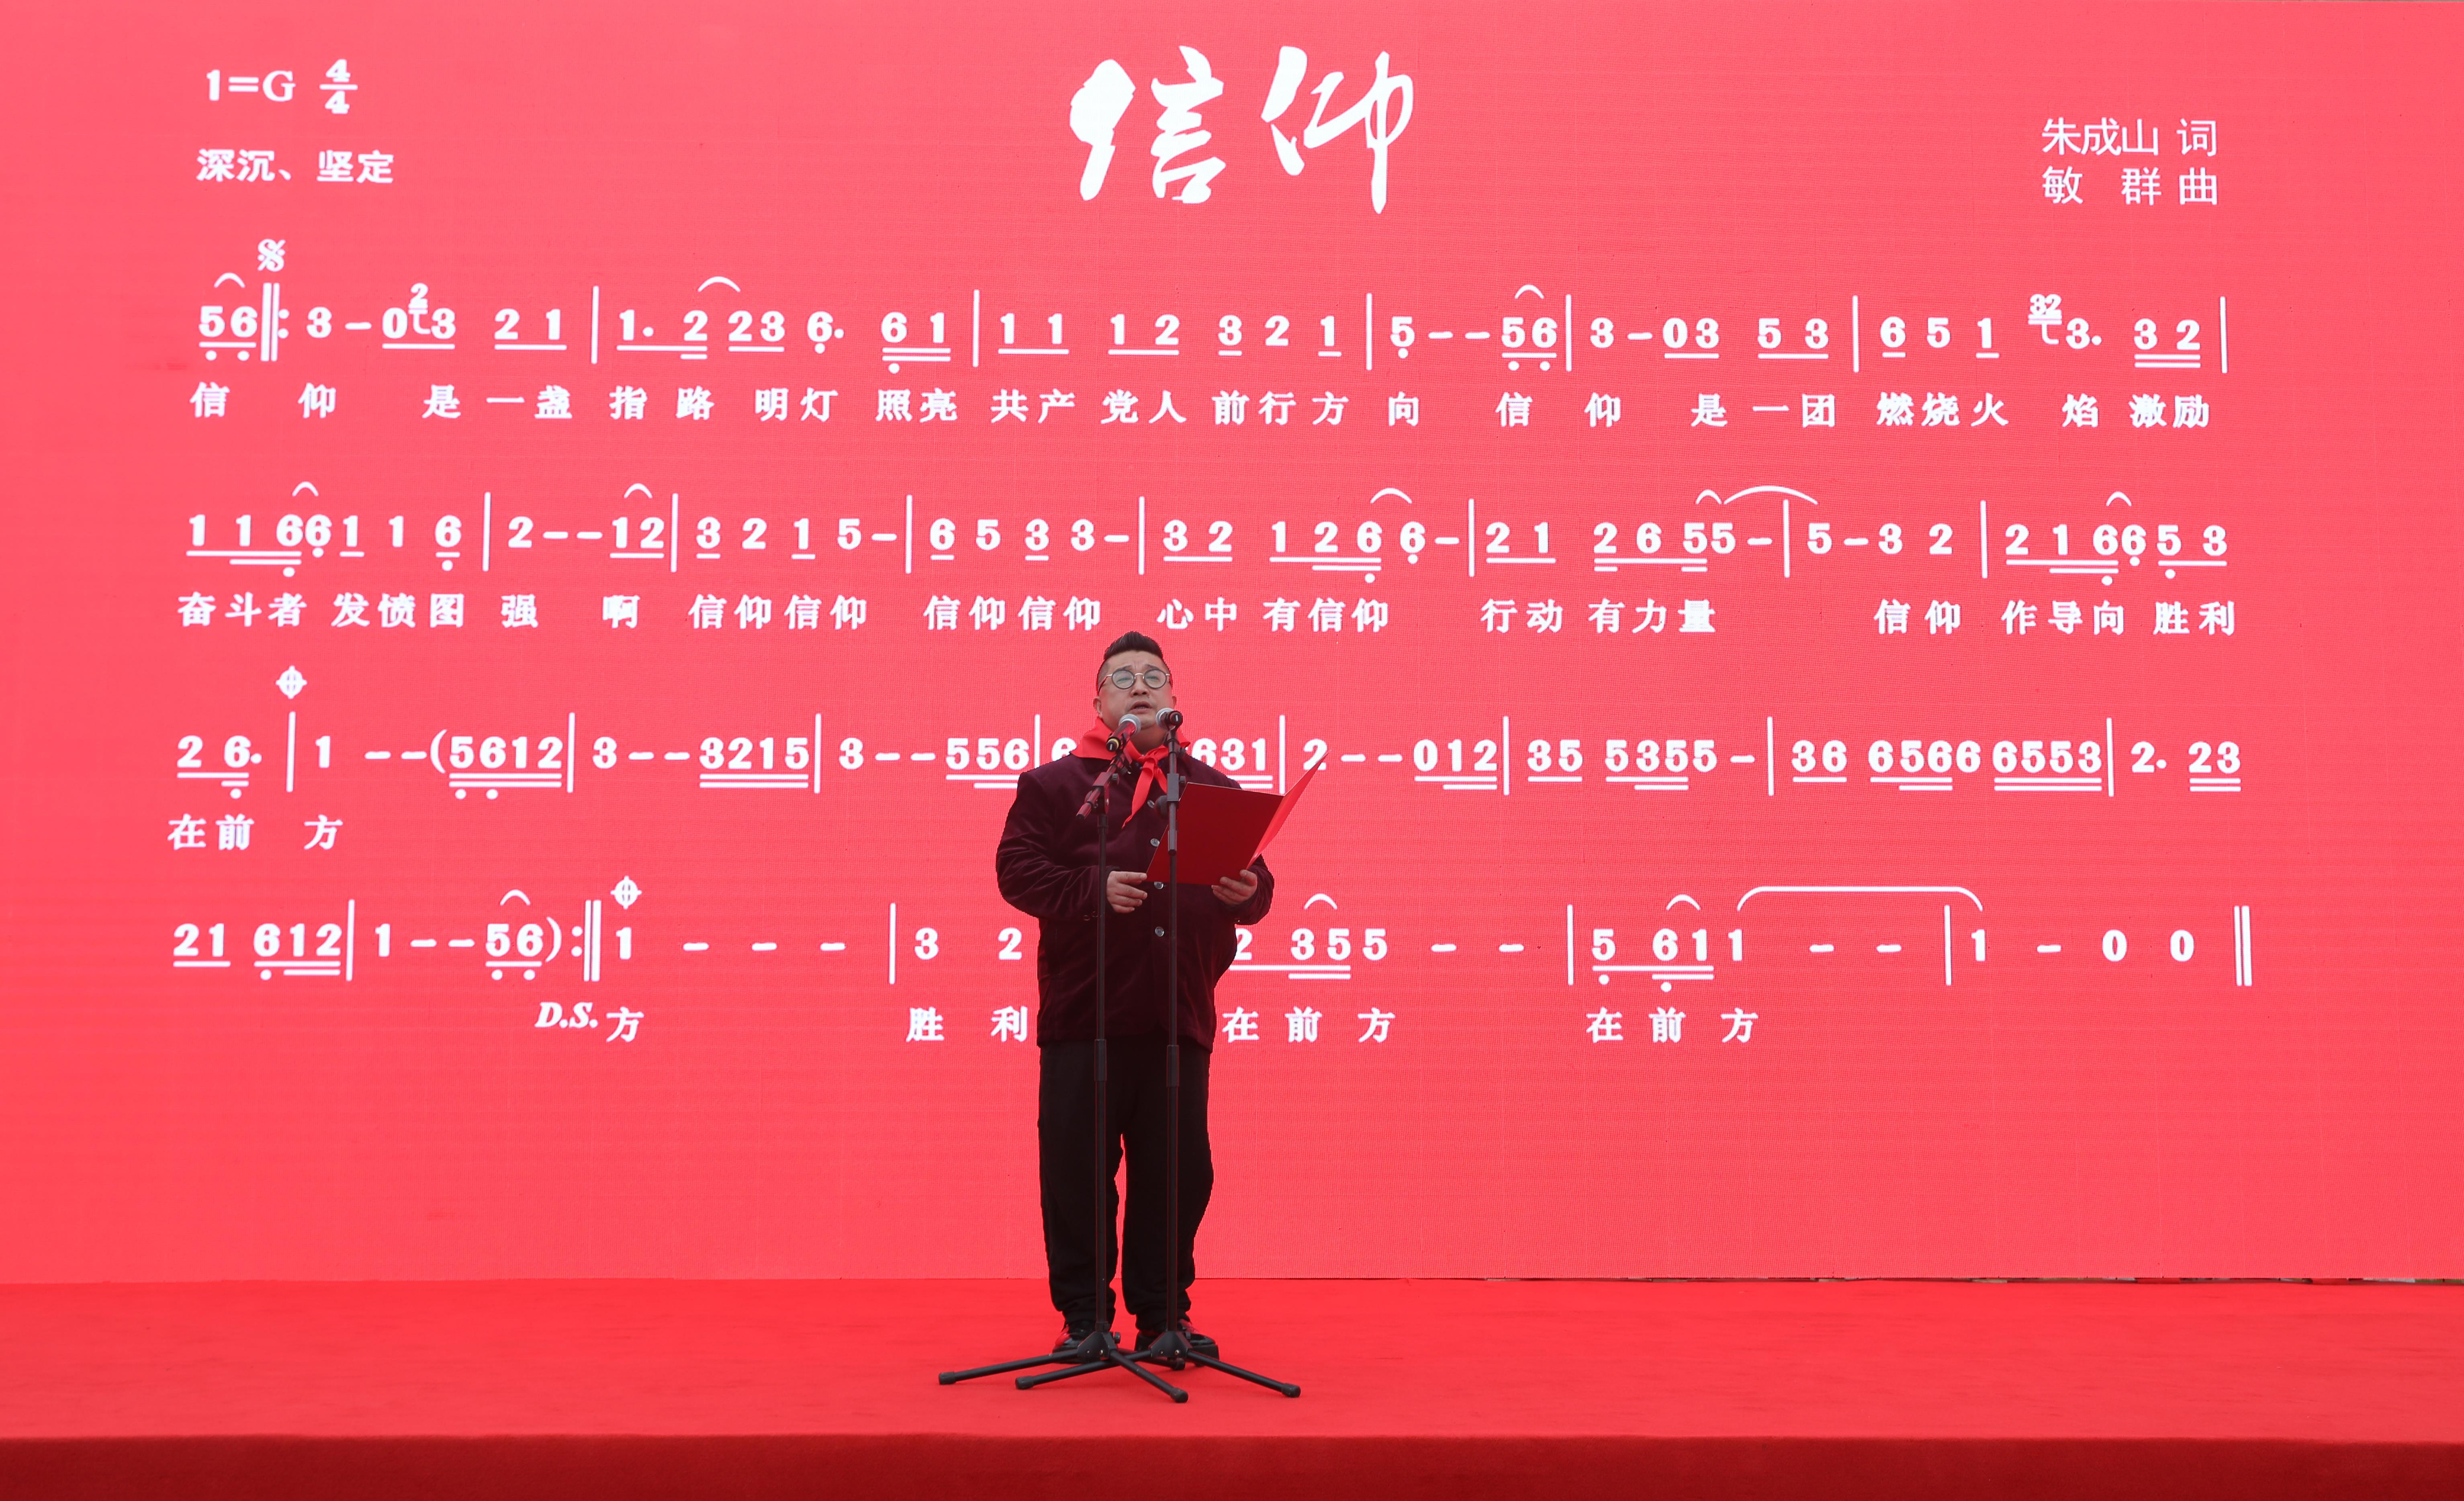 信仰
1=G 4/4
深沉、坚定
朱成山 词
敏 群 曲
56 3 - 0 2 3 2 1 | 1. 2 23 6. 6 1 | 1 1 1 2 3 2 1 | 5 - - 56 | 3 - 03 5 3 | 6 5 1 32 3. 3 2 |
信 仰 是 一 盏 指 路 明 灯 照 亮 共 产 党 人 前 行 方 向 信 仰 是 一 团 燃 烧 火 焰 激 励
1 1 6 6 1 1 6 | 2 - - 12 | 3 2 1 5 - | 6 5 3 3 - | 3 2 1 2 6 6 - | 2 1 2 6 5 5 - | 5 - 3 2 | 2 1 6 6 5 3
奋 斗 者 发 愤 图 强 啊 信 仰 信 仰 信 仰 信 仰 心 中 有 信 仰 行 动 有 力 量 信 仰 作 导 向 胜 利
2 6. | 1 - - (5612 | 3 - - 3215 | 3 - - 556 | 631 | 2 - - 012 | 35 5355 - | 36 6566 6553 | 2. 23
在 前 方
21 612 | 1 - - 56) :‖ 1 - - - | 3 2 2 355 - - | 5 611 - - | 1 - 0 0 ‖
D.S. 方 胜 利 在 前 方 在 前 方